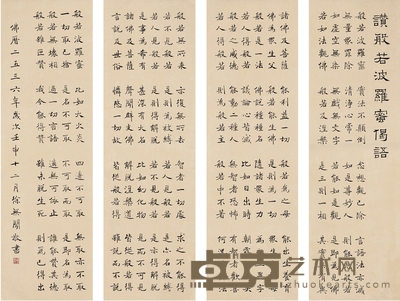 讚般若波羅蜜偈語
般若波羅蜜 實法不顛倒 念想觀已除 言語法亦滅
無量眾罪除 清淨心常一 如是尊妙人 則能見般若
如虛空無染 無戲無文字 若能如是觀 是即為見佛
若如法觀佛 般若及涅槃 是三則一相 其實無有異
諸佛及菩薩 能利益一切 般若為之母 能出生養育
佛為眾生父 般若能生佛 是則為一切 眾生之祖母
般若是一法 佛說種種名 隨諸眾生力 為之立異字
若人得般若 議論心皆滅 比如日出時 朝露一時失
般若之威德 能動二種人 無智者恐怖 有智者歡喜
若人得般若 則為般若主 般若中不著 何況於餘法
般若無所來 亦復無所去 智者一切處 求之不能得
若不見般若 是則為被縛 若人見般若 是亦名被縛
若人見般若 是則得解脫 若不見般若 是亦得解脫
是事為希有 甚深有大名 比如幻化物 見而不可見
諸佛及菩薩 聲聞辟支佛 解脫涅槃道 皆從般若得
言說為世俗 憐愍一切故 假名說諸法 雖說而不說
般若波羅蜜 比如大火炎 四邊不可取 無取亦不取
一切取已捨 是名不可取 不可取而取 是即名為取
般若無壞相 過一切言語 適無所依止 誰能讚其德
般若雖叵讚 我今能得讚 雖未脫死地 則為已得出
佛曆二五三六年歲次壬申十二月徐無聞敬書